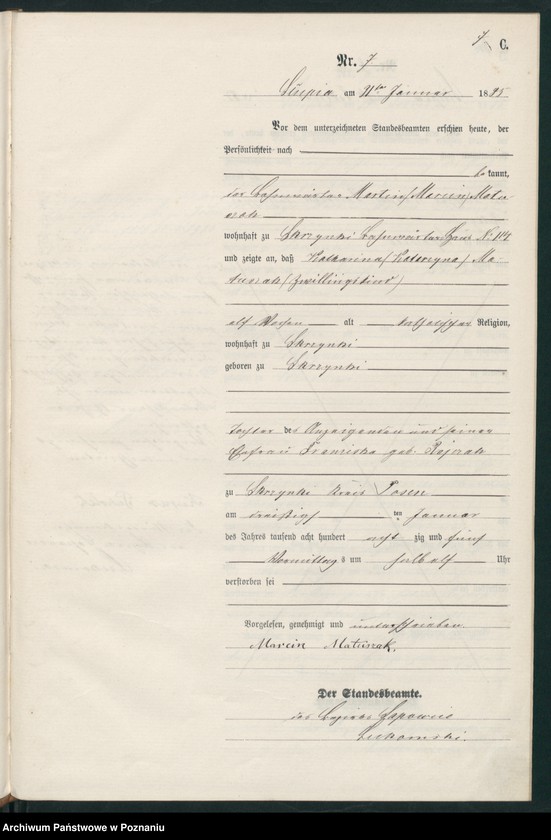 7 C.
Nr. 7
am Januar 1895
Vor dem unterzeichneten Standesbeamten erschien heute, der
Persönlichkeit nach
bekannt,
der
wohnhaft zu Skrzynki
und zeigte an, daß Katharina (Katarzyna) Ma-
tuszak (Zwillingskind)
elf Wochen alt katholischer Religion,
wohnhaft zu Skrzynki
geboren zu Skrzynki
Tochter des Anzeigenden und seiner
Ehefrau Franciska geb.
zu Skrzynki Kreis Posen
am ten Januar
des Jahres tausend acht hundert zig und fünf
Vormittags um halb elf Uhr
verstorben sei
Vorgelesen, genehmigt und unterschrieben.
Marcin Matuszak.
Der Standesbeamte.
Archiwum Państwowe w Poznaniu